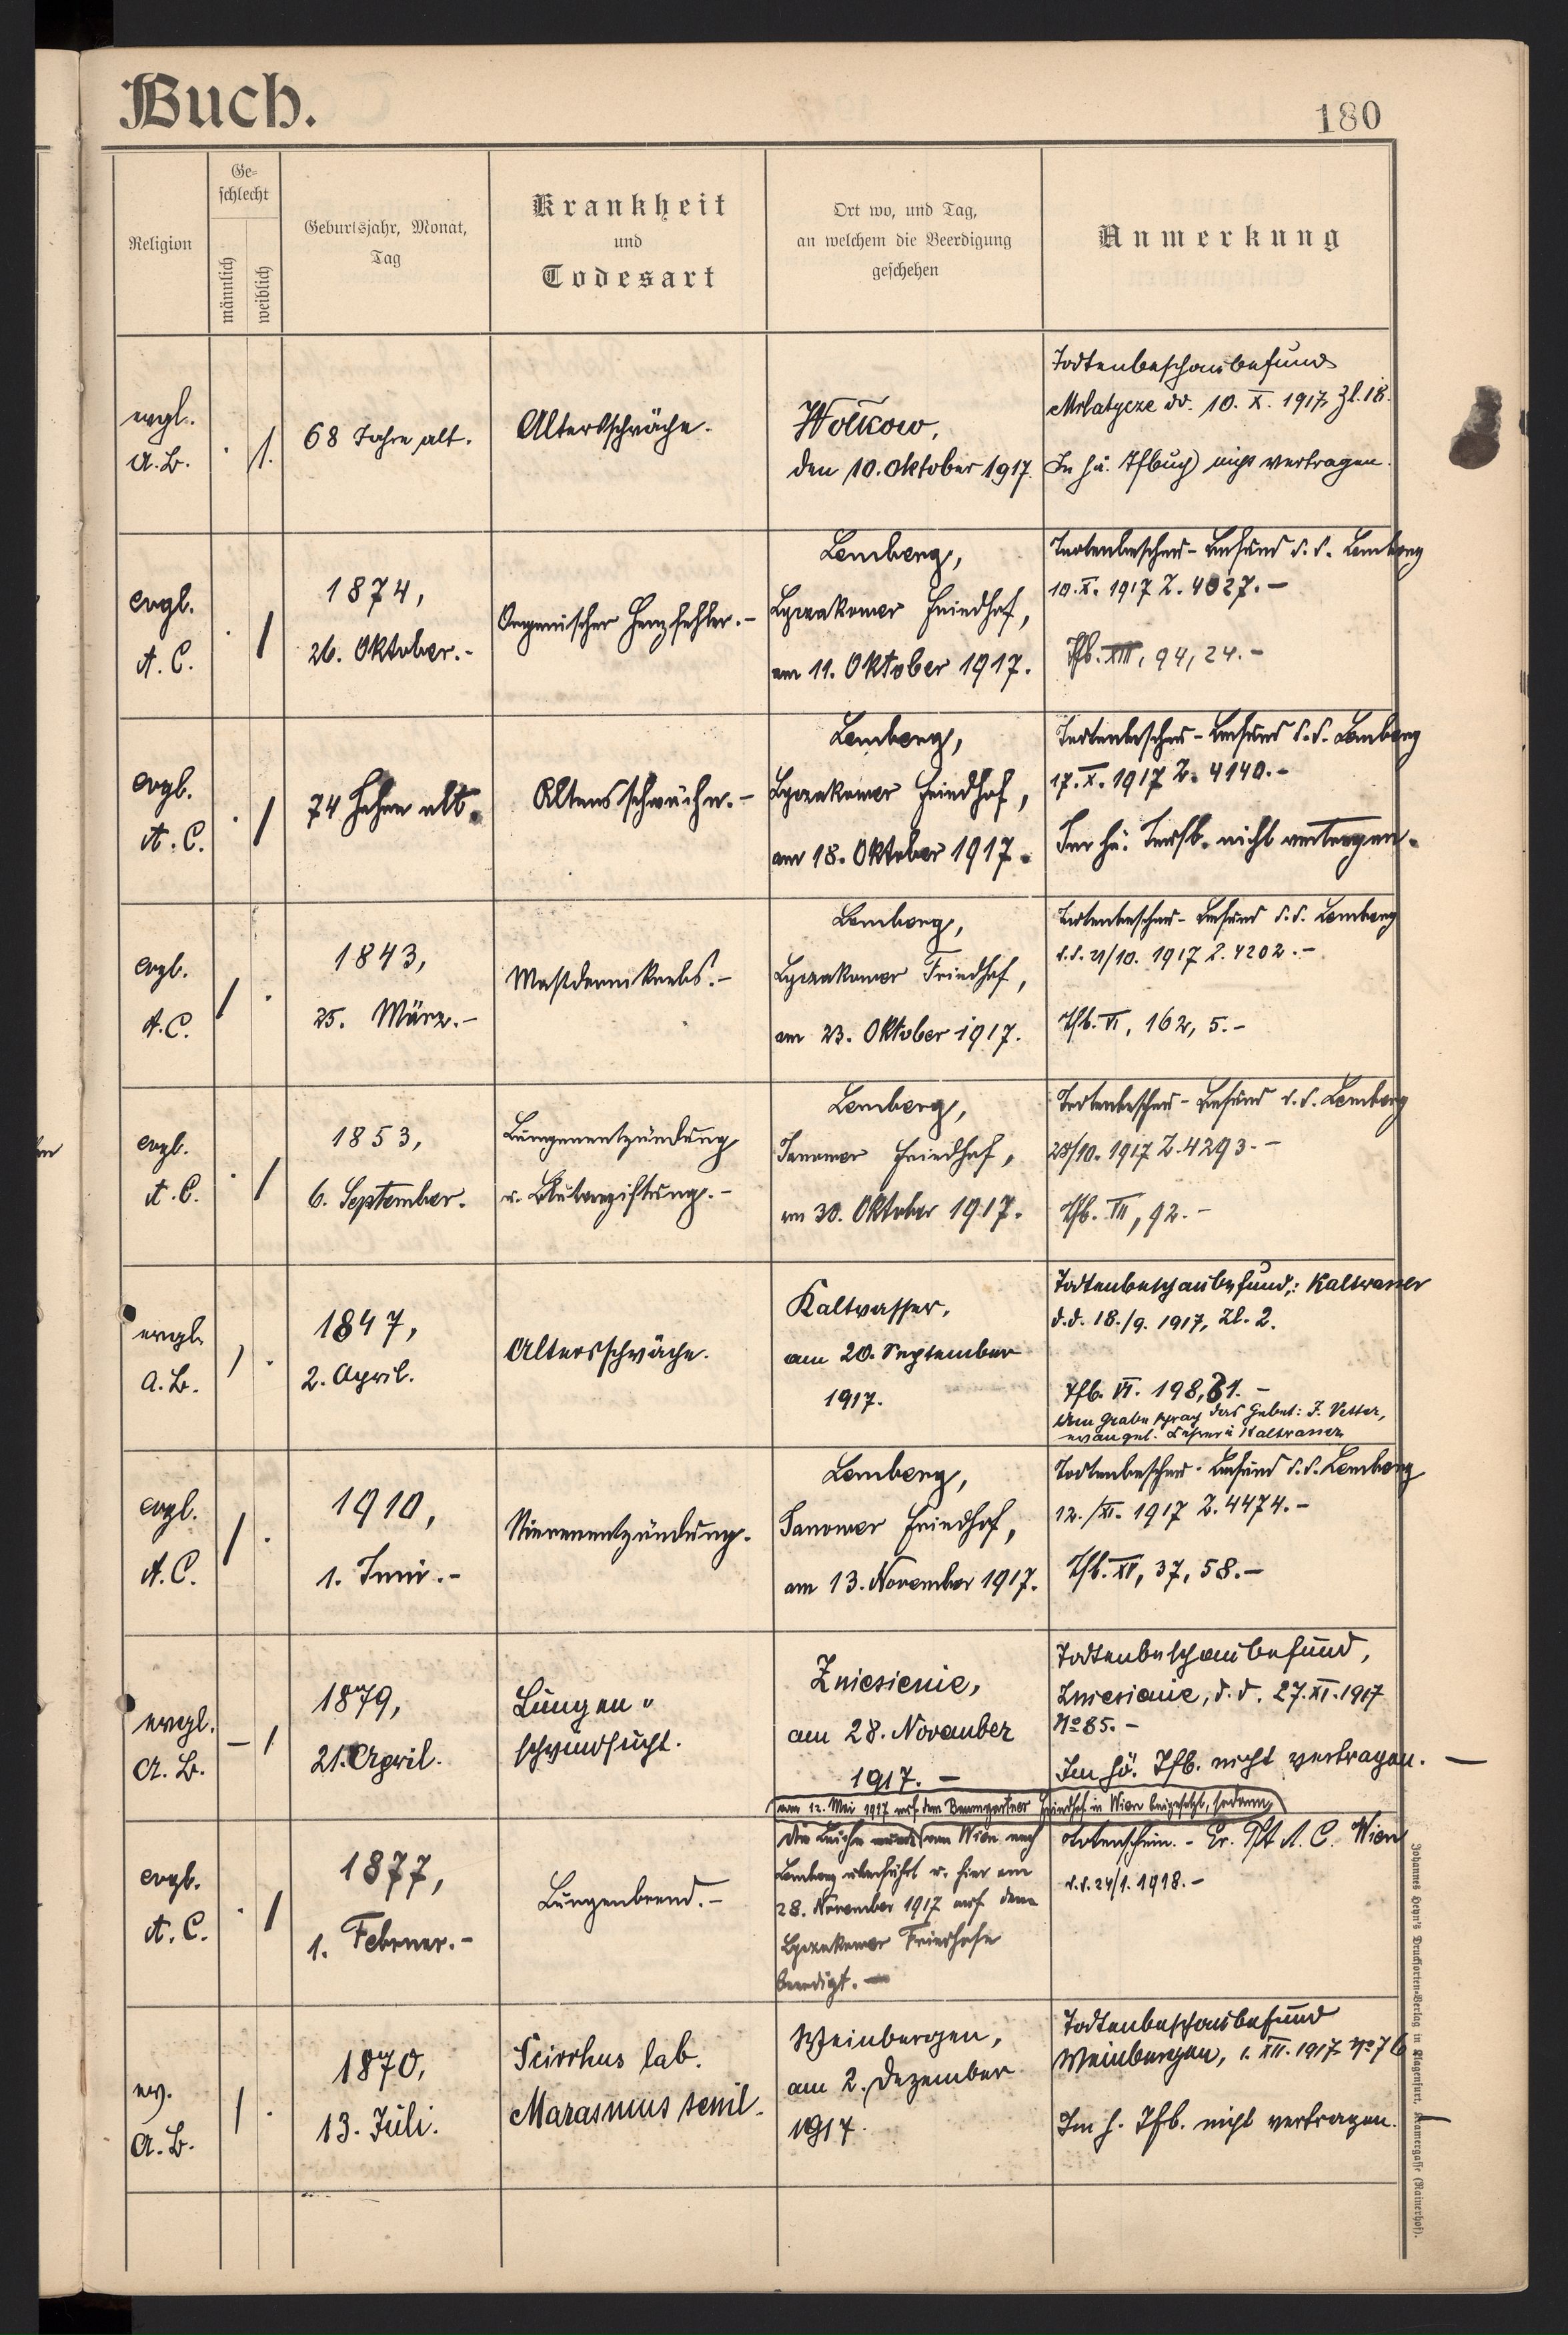 Buch.
180
Religion
Ge=
schlecht
männlich
weiblich
Geburtsjahr, Monat,
Tag
Krankheit
und
Todesart
Ort wo, und Tag,
an welchem die Beerdigung
geschehen
Anmerkung
evgl.
A.B.
.
1.
68 Jahre alt.
Altersschwäche.
Wolkow,
den 10. Oktober 1917.
Todtenbeschaubefund
Mrlatycze dd. 10. X. 1917. Zl. 18.
In hä. Tfbuch nicht vertragen.
evgl.
A. C.
.
1
1874,
26. Oktober.-
Organischer Herzfehler.-
Lemberg,
Lyczakower Friedhof,
am 11. Oktober 1917.
Todtenbeschau-Befund d.d. Lemberg
10. X. 1917 Z. 4027.-
Tfb. XIII, 94, 24.-
evgl.
A. C.
.
1
74 Jahre alt.
Altersschwäche.-
Lemberg,
Lyczakower Friedhof,
am 18. Oktober 1917.
Todtenbeschau-Befund d.d. Lemberg
17. X. 1917 Z. 4140.-
Im hä. Taufb. nicht vertragen.
evgl.
A.C.
1
.
1843,
25. März.-
Mastdarmkrebs.-
Lemberg,
Lyczakower Friedhof,
am 23. Oktober 1917.
Todtenbeschau-Befund d.d. Lemberg
d.d. 21/10. 1917 Z. 4202.-
Tfb. VI, 162, 5.-
evgl.
A.C.
.
1
1853,
6. September.
Lungenentzündung
u. Blutvergiftung.-
Lemberg,
Janower Friedhof,
am 30. Oktober 1917.
Todtenbeschau-Befund d.d. Lemberg
28/10. 1917 Z. 4293.-
Tfb. VII, 92.-
evgl.
A.B.
1
.
1847,
2. April.
Altersschwäche.
Kaltwasser,
am 20. September
1917.
Todtenbeschaubefund: Kaltwasser
d.d. 18./9. 1917, Zl. 2.
Tfb. VI. 198, 31.-
Am Grabe sprach das Gebet: J. Vetter,
evangel. Lehrer i Kaltwasser
evgl.
A.C.
1
.
1910,
1. Juni.-
Nierenentzündung.
Lemberg,
Janower Friedhof,
am 13. November 1917.
Todtenbeschau-Befund d.d. Lemberg
12./XI. 1917 Z. 4474.-
Tfb. XI, 37, 58.-
evgl.
A.B.
-
1
1879,
21. April.
Lungen=
schwindsucht.
Zniesienie,
am 28. November
1917.-
Todtenbeschaubefund,
Zniesienie, d.d. 27. XI. 1917
No 85.-
Im hä. Tfb. nicht vertragen.-
am 12. Mai 1917 auf dem Baumgartner Friedhof in Wien beigesetzt, sodann
evgl.
A.C.
.
1
1877,
1. Februar.-
Lungenbrand.-
Die Leiche wurde von Wien nach
Lemberg überführt u. hier am
28. November 1917 auf dem
Lyczakower Friedhofe
beerdigt.-
Totenschein.- Ev. Pft A. C. Wien
d.d. 24/1. 1918.-
ev.
A.B.
1
.
1870,
13. Juli.
Scirrhus lab.
Marasmus senil.
Weinbergen,
am 2. Dezember
1917.
Todtenbeschaubefund
Weinbergen, 1. XII. 1917. No 76
Im h. Tfb. nicht vertragen.-
Johannes Heyn's Drucksorten-Verlag in Klagenfurt, Kramergasse (Rainerhof).